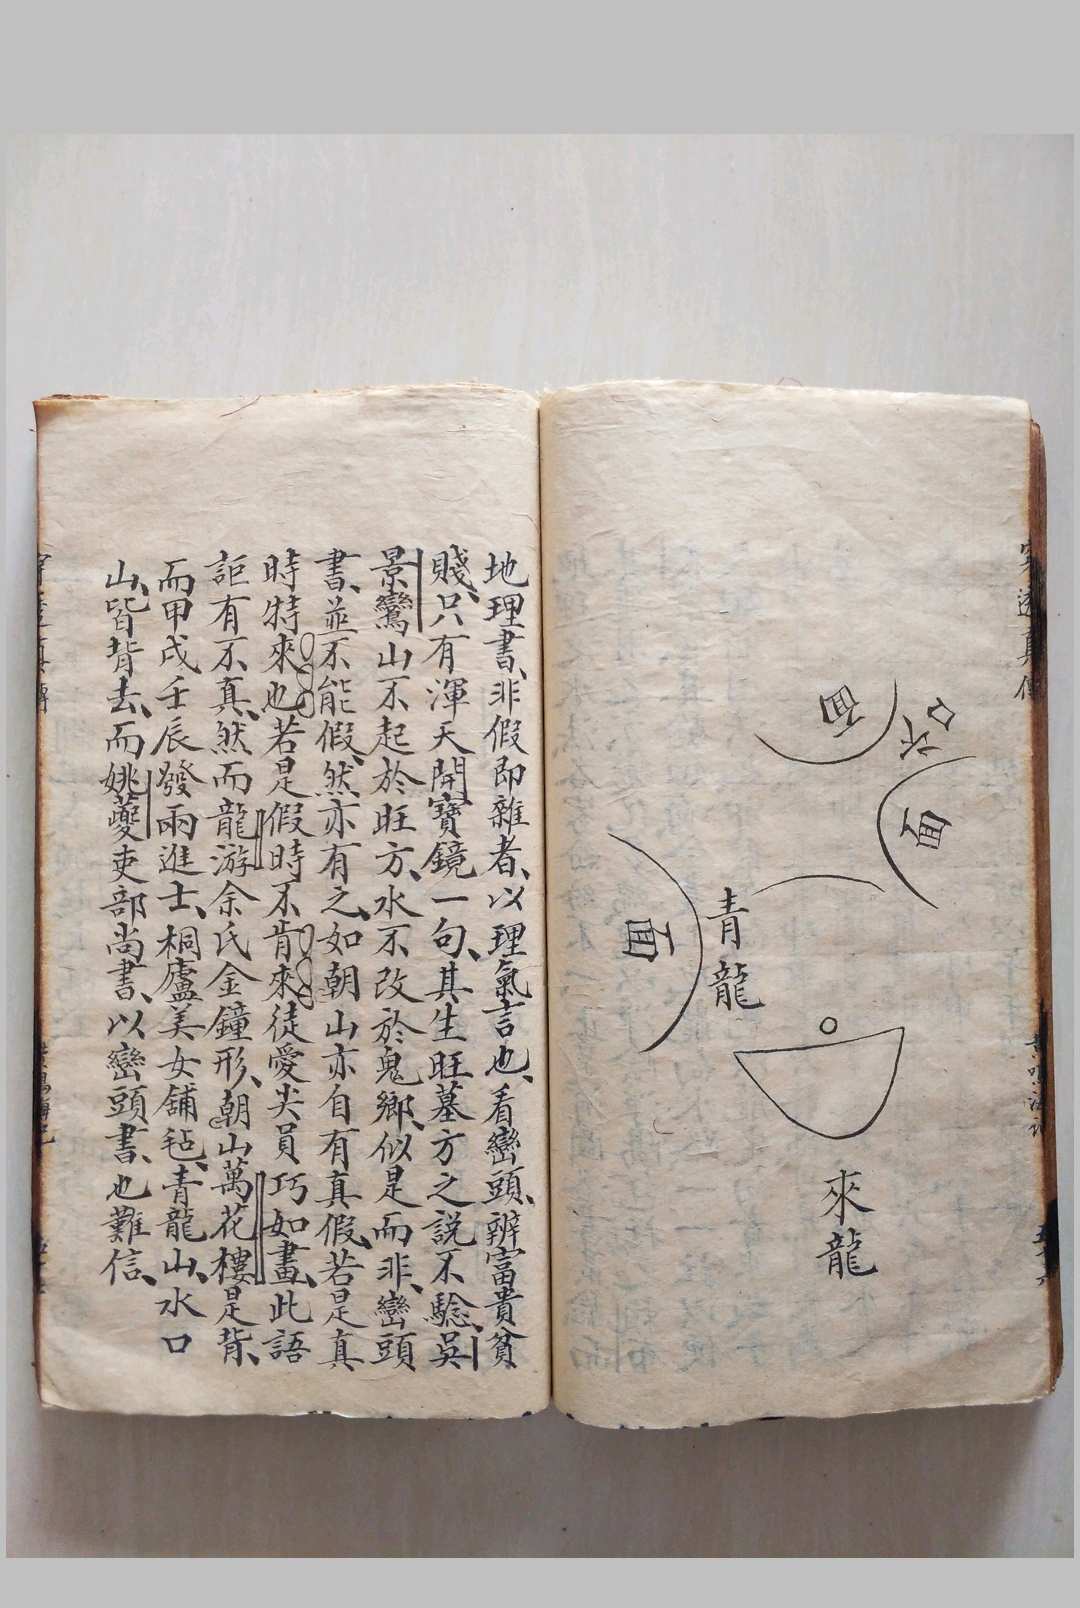 面
水口
面
青龍
面
來龍
地理書、非假即雜者、以理氣言也、看巒頭、辨富貴貧
賤、只有渾天開寶鏡一句、其生旺墓方之說不驗、吳
景鸞山不起於旺方、水不改於鬼鄉、似是而非、巒頭
書、並不能假、然亦有之、如朝山亦自有真假、若是真
時特來也若是假時不肯來徒愛尖員巧如畫、此語
詎有不真、然而龍游余氏金鐘形、朝山萬花樓是背、
而甲戌壬辰發兩進士、桐廬美女舖毡、青龍山、水口
山、皆背去、而姚夔吏部尚書、以巒頭書、也難信、